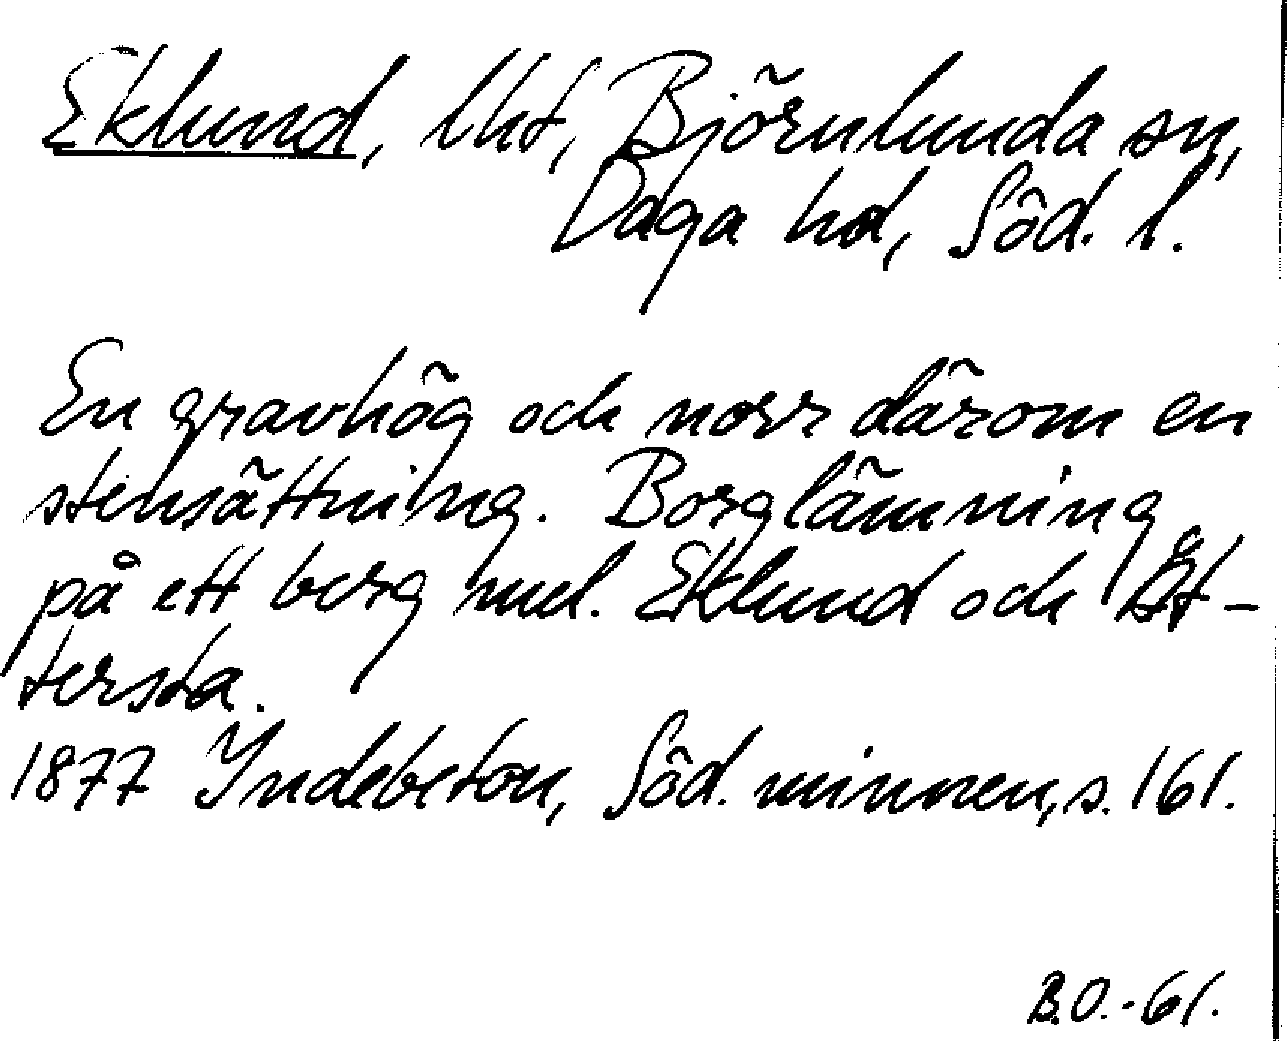 Eklund, lht, Björnlunda sn,
Daga hd, Söd. l.
En gravhög och norr därom en
stensättning. Borglämning
på ett berg mel. Eklund och Ät-
tersta.
1877 Yndebeton, Söd. minnen, s. 161.
B.O.-61.